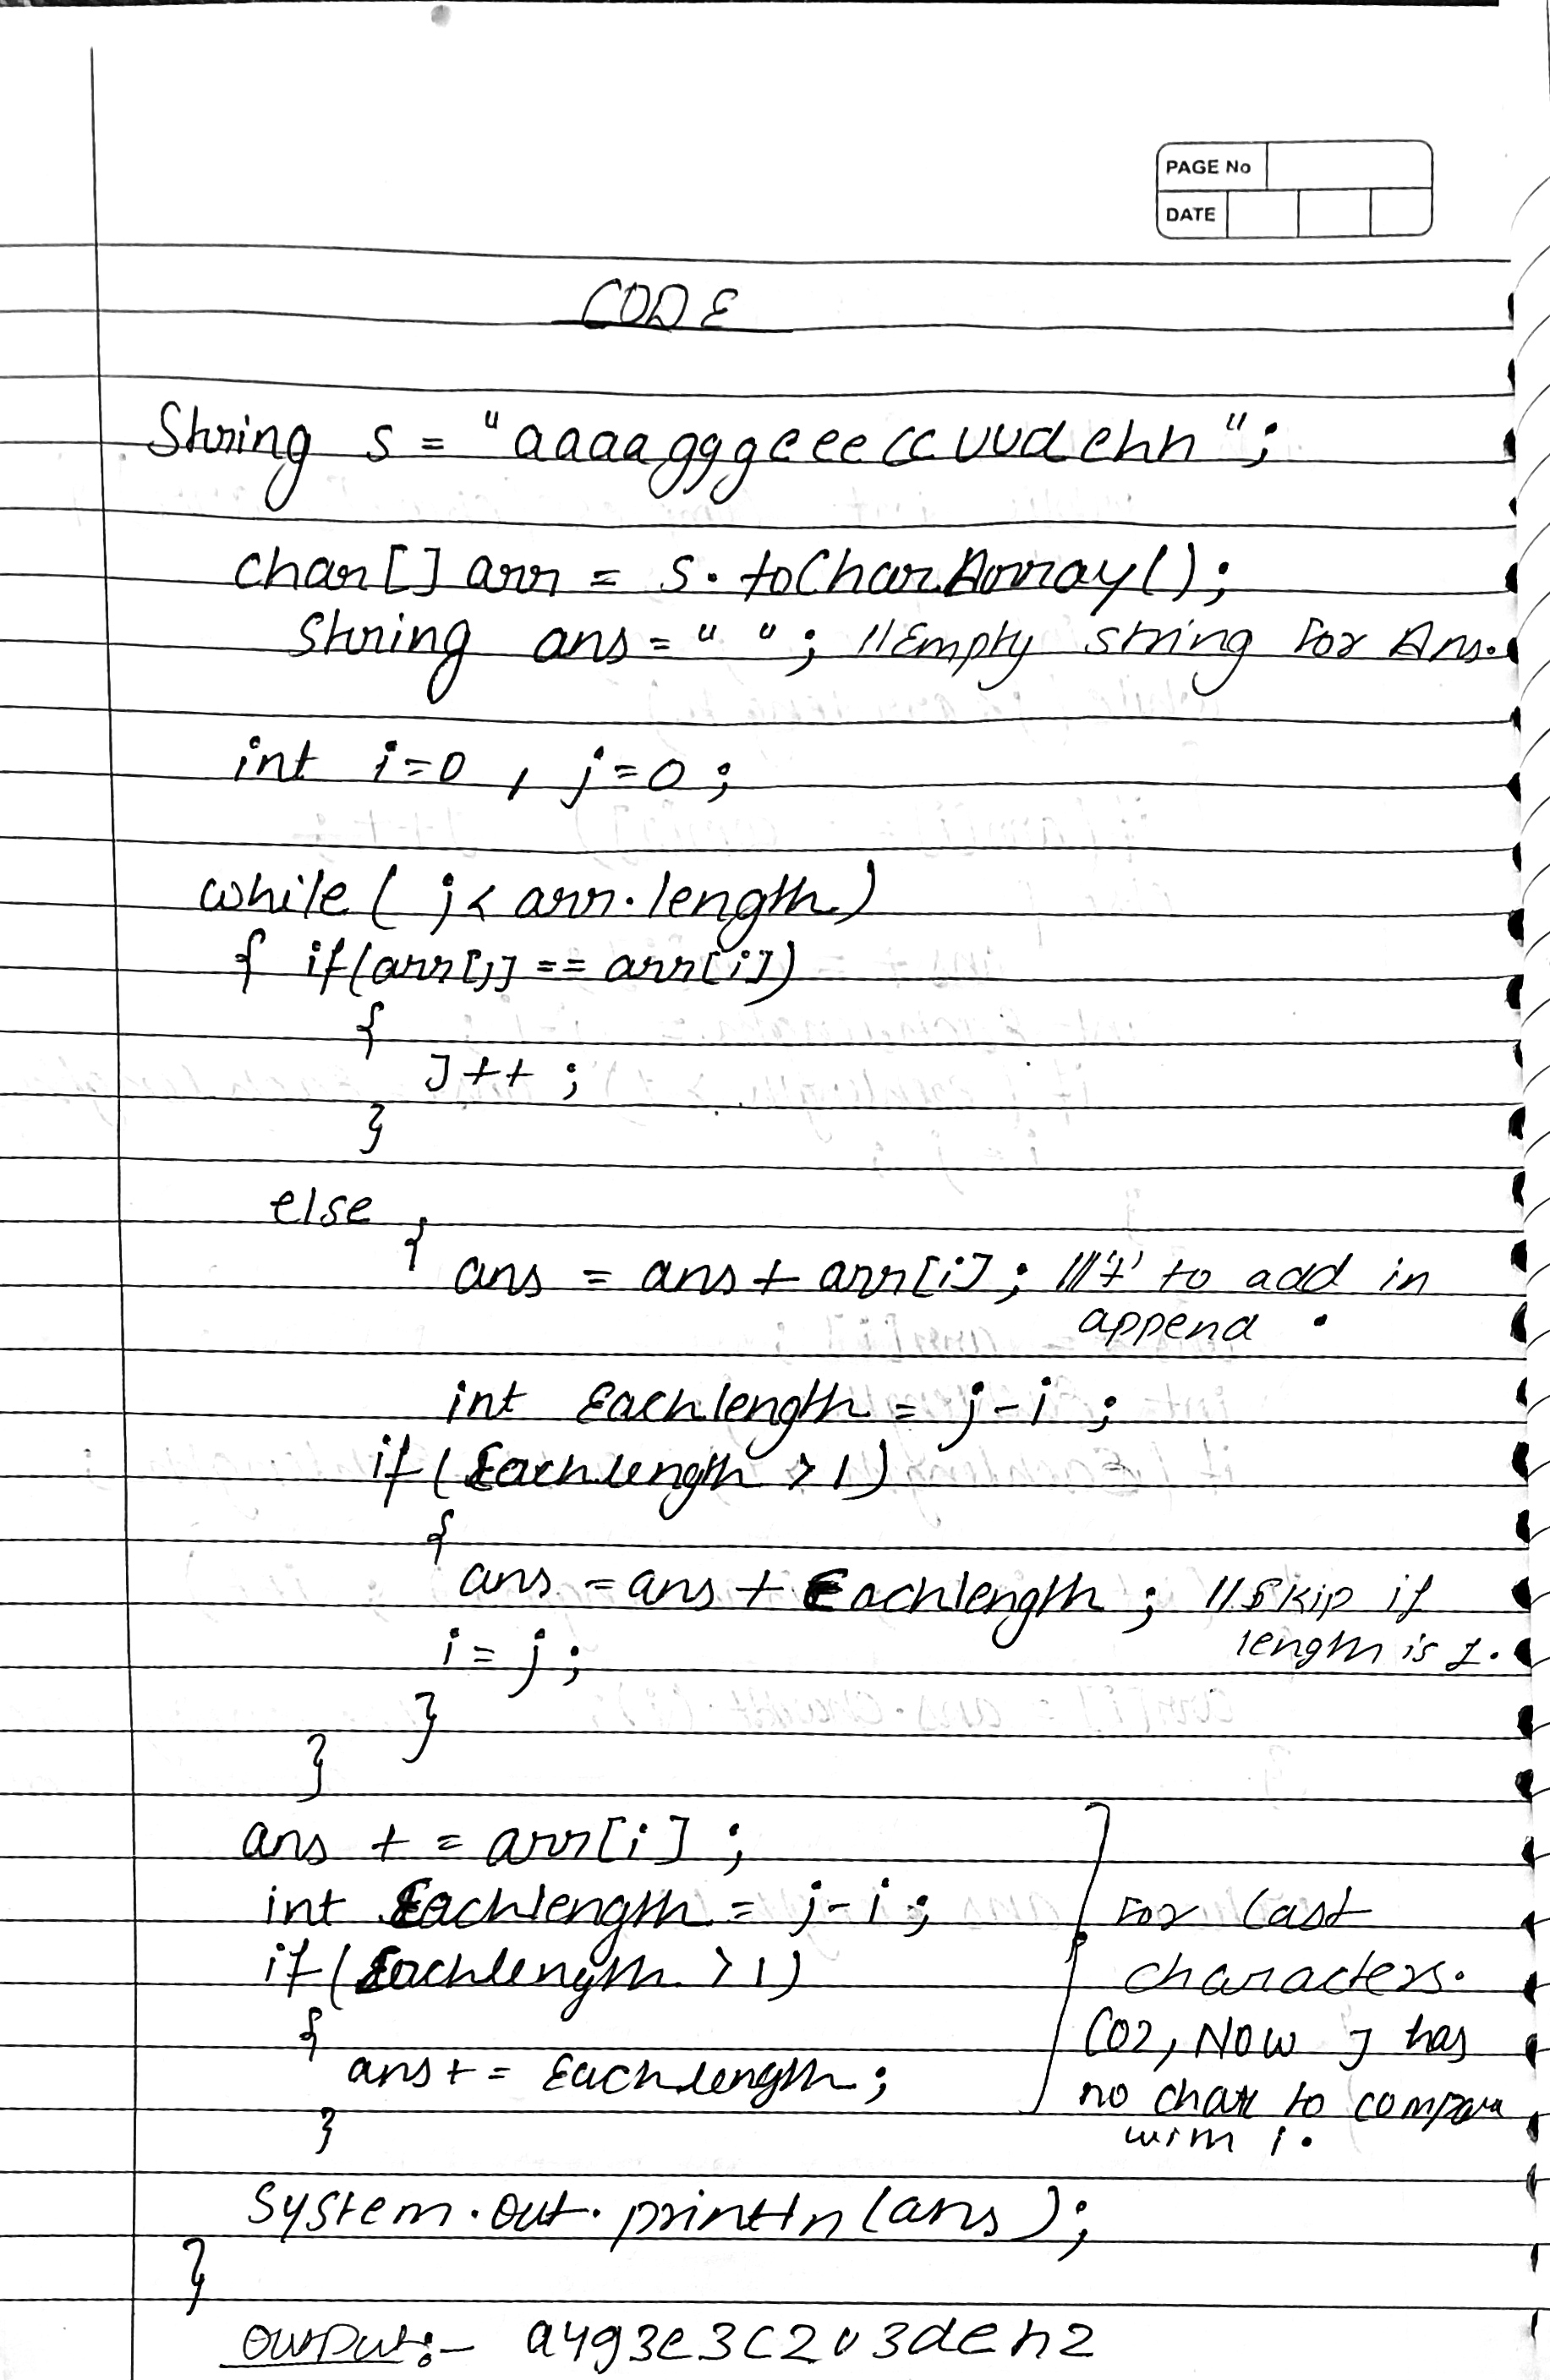 PAGE No
DATE
CODE
String s = "aaaagggeeeccuudehh";
char[] arr = s.toCharArray();
String ans = " "; //Empty string For Ans.
int i=0 , j=0 ;
while ( j < arr.length )
{ if(arr[j] == arr[i])
{
J++ ;
}
else
{
ans = ans + arr[i]; //'+' to add in
append .
int Eachlength = j-i ;
if ( Eachlength > 1 )
{
ans = ans + Eachlength ; //Skip if
length is 1.
i = j ;
}
}
ans += arr[i] ;
int Eachlength = j-i ;
For Last
if ( Eachlength > 1 )
characters.
{
Coz, Now J has
ans += Eachlength ;
no char to compare
}
with i.
System.out.println(ans);
}
Output:- a4g3e3c2u3deh2